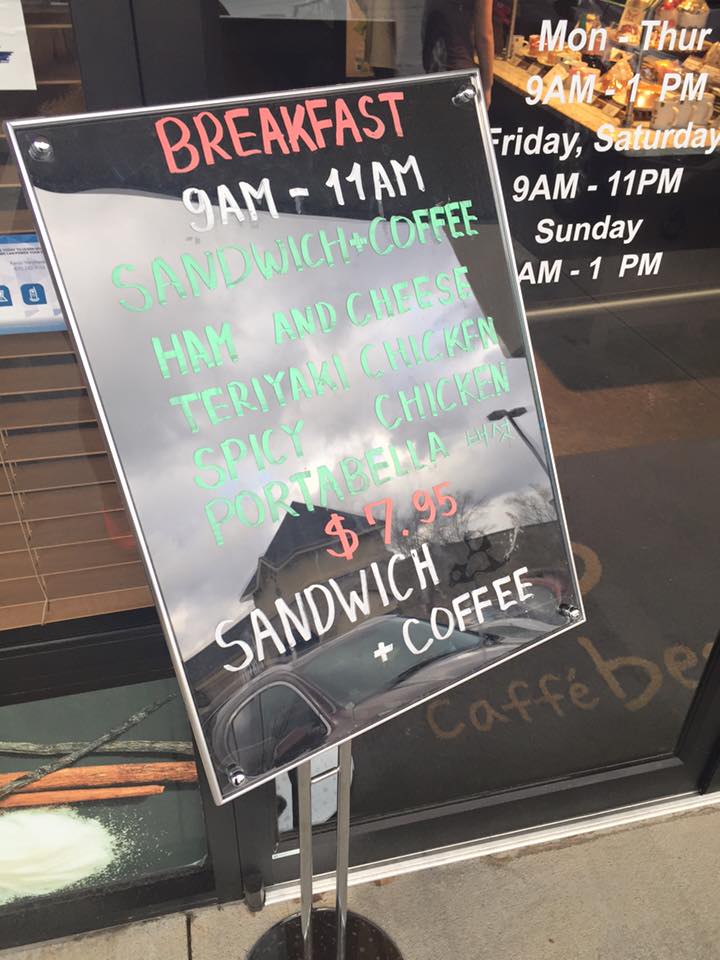 BREAKFAST
9AM - 11AM
SANDWICH + COFFEE
HAM AND CHEESE
TERIYAKI CHICKEN
SPICY CHICKEN
PORTABELLA 버섯
$7.95
SANDWICH
+ COFFEE
Mon - Thur
9AM - 1 PM
Friday, Saturday
9AM - 11PM
Sunday
AM - 1 PM
caffé be